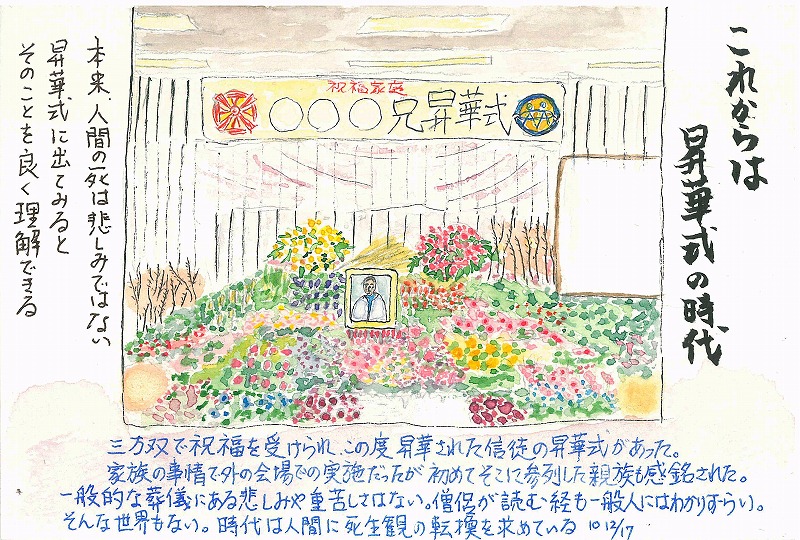 これからは
昇華式の時代
祝福家庭
○○○兄昇華式
本来、人間の死は悲しみではない
昇華式に出てみると
そのことを良く理解できる
三万双で祝福を受けられ、この度昇華された信徒の昇華式があった。
家族の事情で外の会場での実施だったが初めてそこに参列した親族も感銘された。
一般的な葬儀にある悲しみや重苦しさはない。僧侶が読む経も一般人にはわかりずらい。
そんな世界もない。時代は人間に死生観の転換を求めている 10 12/17